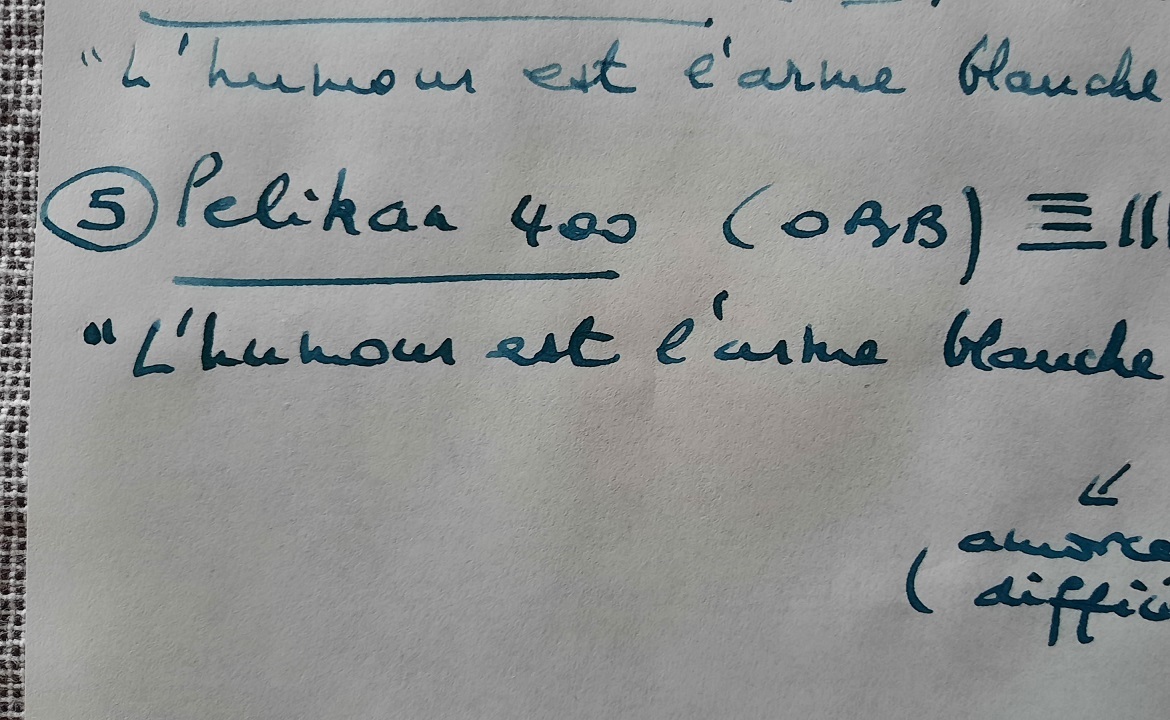 "L'humour est l'arme blanche
⑤ Pelikan 400 (OBB)
"L'humour est l'arme blanche
amorce
( diffici